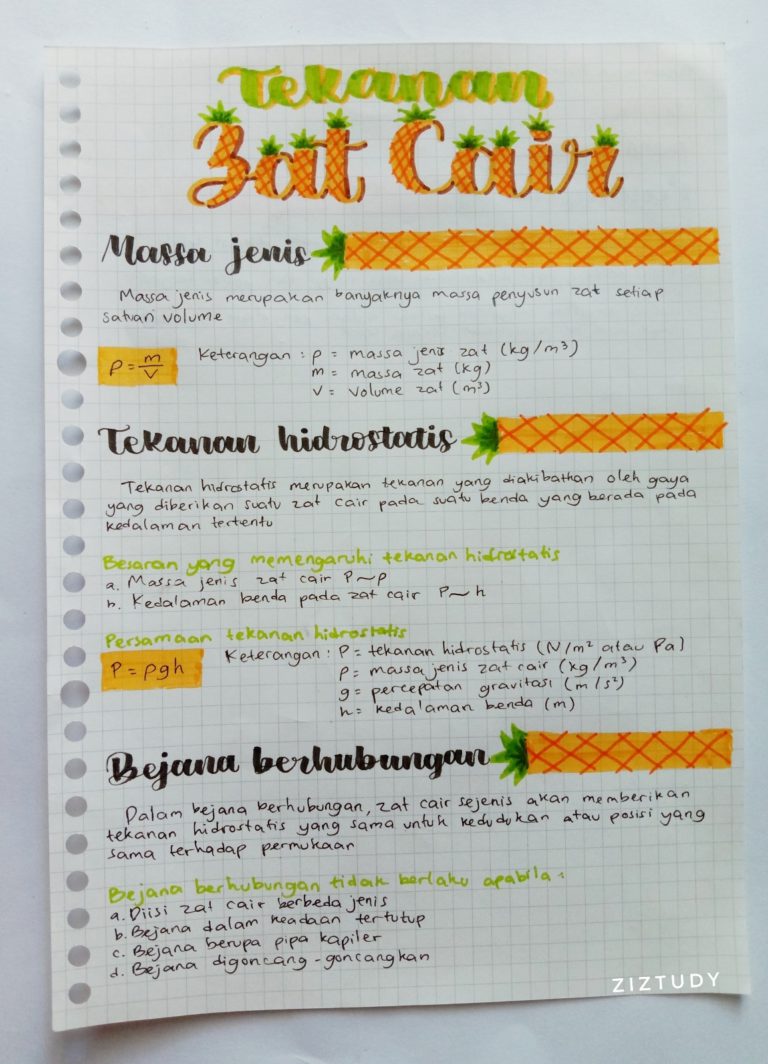 Tekanan
Zat Cair
Massa jenis
Massa jenis merupakan banyaknya massa penyusun zat setiap
satuan volume
ρ = m/V
Keterangan : ρ = massa jenis zat (kg/m³)
m = massa zat (kg)
V = volume zat (m³)
Tekanan hidrostatis
Tekanan hidrostatis merupakan tekanan yang diakibatkan oleh gaya
yang diberikan suatu zat cair pada suatu benda yang berada pada
kedalaman tertentu
Besaran yang memengaruhi tekanan hidrostatis
a. Massa jenis zat cair P~ρ
b. Kedalaman benda pada zat cair P~h
Persamaan tekanan hidrostatis
P = ρgh
Keterangan : P = tekanan hidrostatis (N/m² atau Pa)
ρ = massa jenis zat cair (kg/m³)
g = percepatan gravitasi (m/s²)
h = kedalaman benda (m)
Bejana berhubungan
Dalam bejana berhubungan, zat cair sejenis akan memberikan
tekanan hidrostatis yang sama untuk kedudukan atau posisi yang
sama terhadap permukaan
Bejana berhubungan tidak berlaku apabila :
a. Diisi zat cair berbeda jenis
b. Bejana dalam keadaan tertutup
c. Bejana berupa pipa kapiler
d. Bejana digoncang-goncangkan
ZIZTUDY